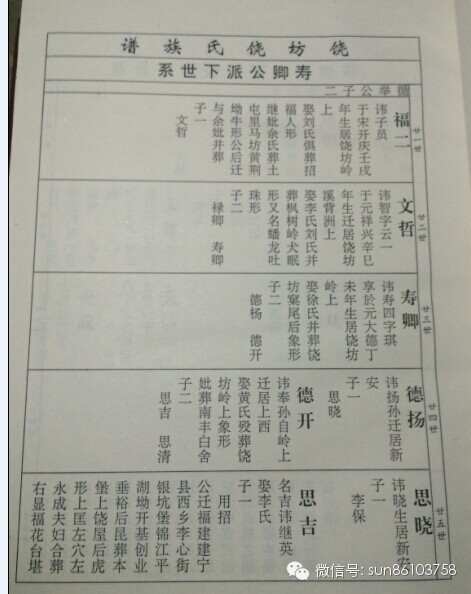 饶坊饶氏族谱
寿卿公派下世系
循举公子二
廿一世
福二
讳子员
于宋开庆壬戌
年生居饶坊岭
上
娶刘氏俱葬招
福人形
继妣余氏葬土
屯里马坊黄荆
坳牛形公后迁
与余妣并葬
子一
文哲
廿二世
文哲
讳智字云一
于元祥兴辛巳
年生迁居饶坊
溪背洲上
娶李氏刘氏并
葬枫树岭犬眠
形又名蟠龙吐
珠形
子二
禄卿 寿卿
廿三世
寿卿
讳寿四字琪
享於元大德丁
未年生居饶坊
岭上
娶徐氏并葬饶
坊窠尾后象形
子二
德杨 德开
廿四世
德扬
讳扬孙迁居新
安
子一
思晓
德开
讳奉孙自岭上
迁居上西
娶黄氏殁葬饶
坊岭上象形
妣葬南丰白舍
子二
思吉 思清
廿五世
思晓
讳晓生居新安
子一
李保
思吉
名吉讳继英
娶李氏
子一
用招
公迁福建建宁
县西乡李心街
银坑堡锦江平
湖坳开基创业
垂裕后昆葬本
堡上饶屋后虎
形上匡左穴左
永成夫妇合葬
右显福花台堪
微信号: sun86103758